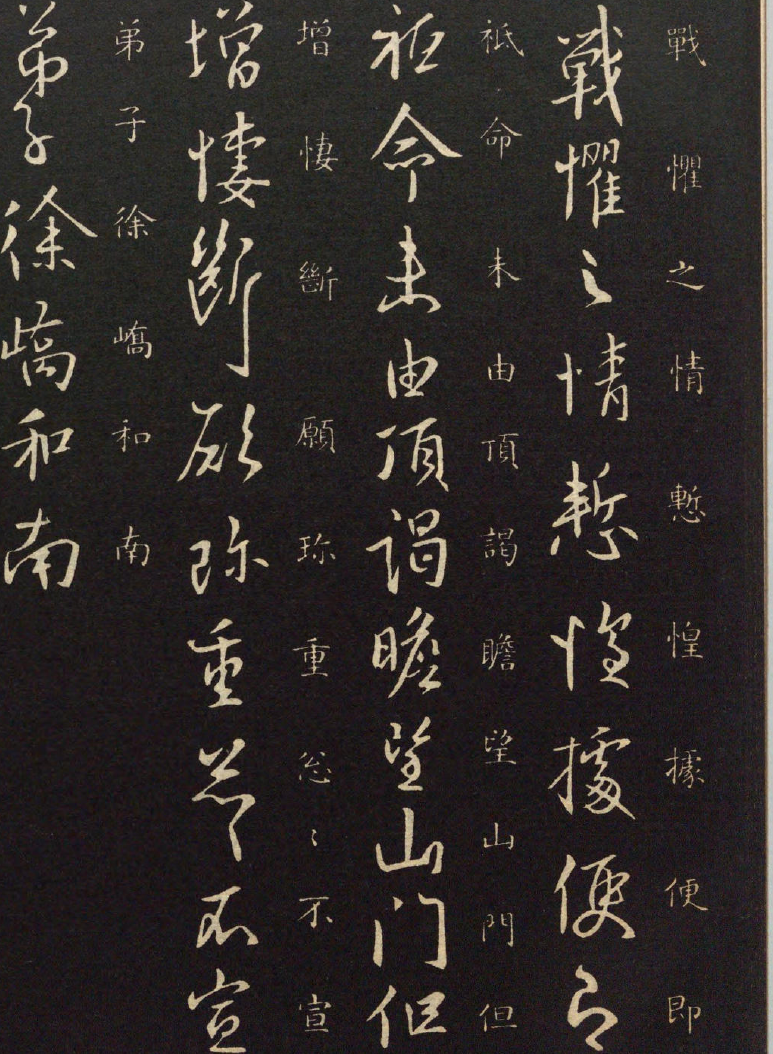 戰懼之情慙惶據便即
戰懼之情慙惶據便即
祇命未由頂謁瞻望山門但
祇命未由頂謁瞻望山門但
增悽斷願珎重忩〻不宣
增悽斷願珎重忩〻不宣
弟子徐嶠和南
弟子徐嶠和南